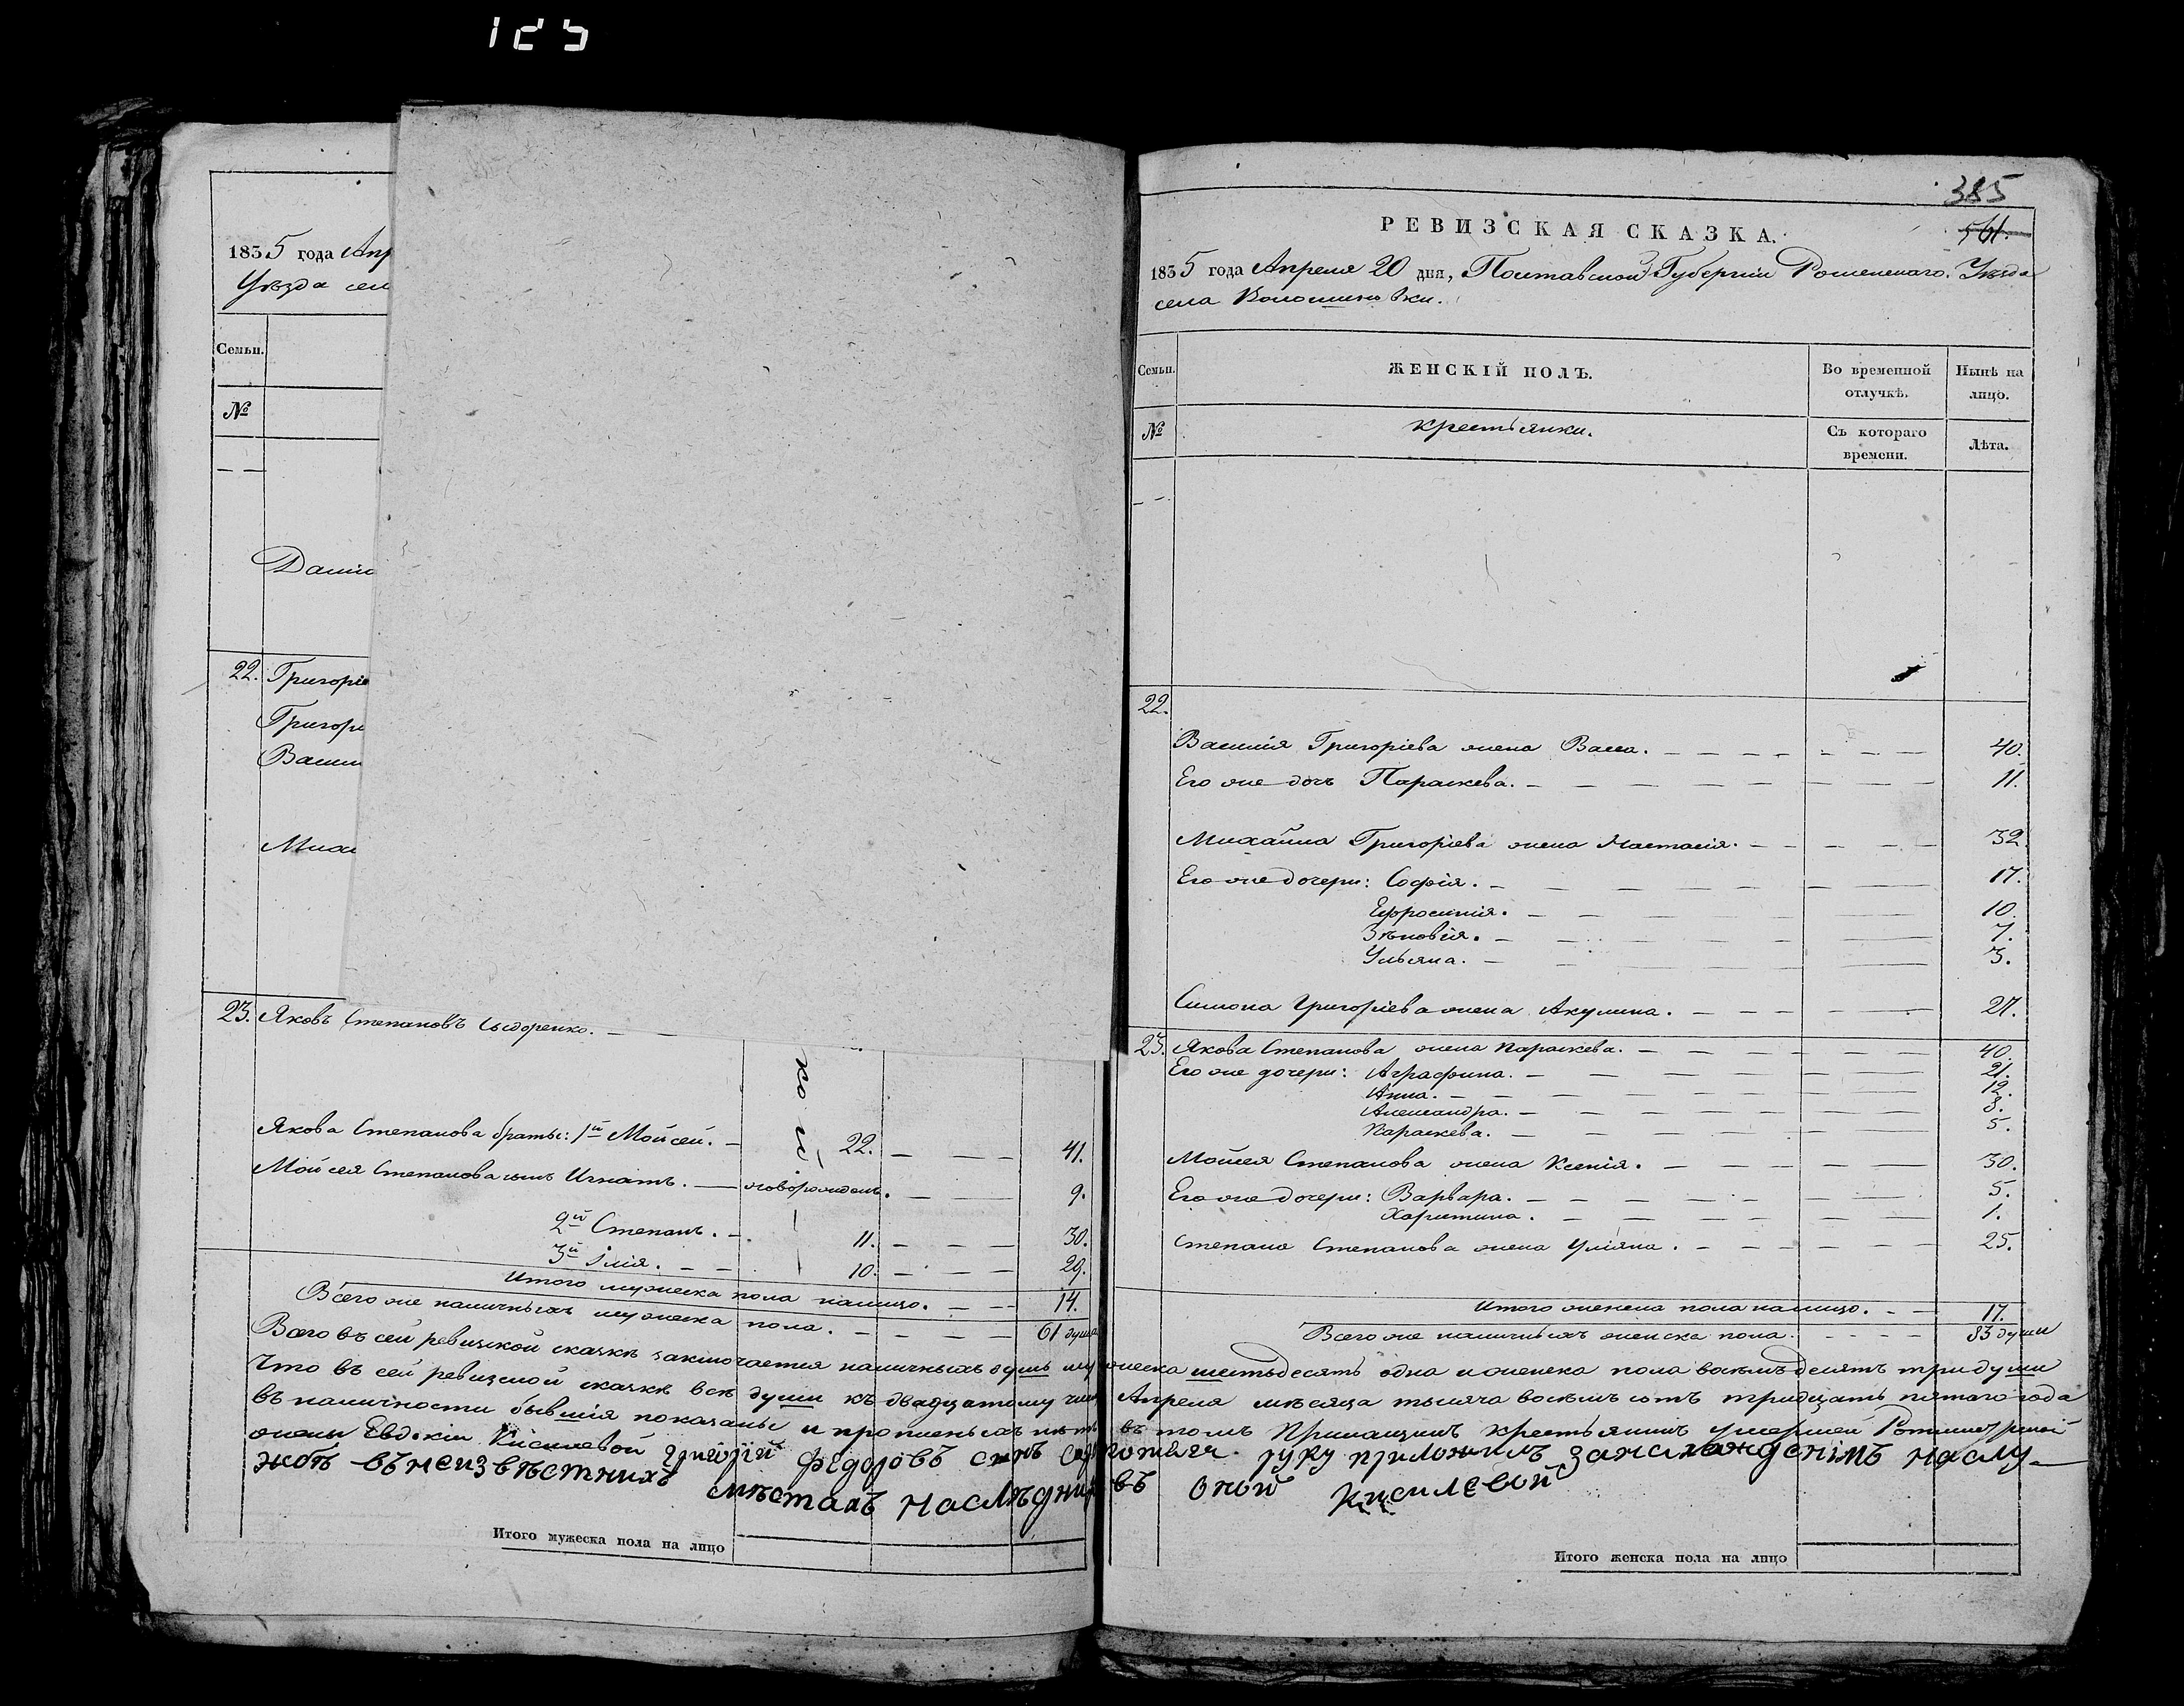 125
1835 года Апр
Уѣзда сел
Семьи.
№
Дани
22. Григоріе
Григорі
Васил
Миха
23. Яковъ Степановъ Сыдоренко.
Якова Степанова братья: 1й Мойсей. 22. 41.
Мойсея Степанова сынъ Игнатъ. новорожденъ. 9.
2й Степанъ. 11. 30.
3й Илія. 10. 29.
Итого мужеска пола налицо. 14.
Всего же наличныхъ мужеска пола. 61 душа
Итого мужеска пола на лицо
385
РЕВИЗСКАЯ СКАЗКА.
561.
1835 года Апреля 20 дня, Полтавской Губерніи Роменскаго Уѣзда
села Волошиновки.
Семьи. ЖЕНСКІЙ ПОЛЪ. Во временной отлучкѣ. Нынѣ на лицо.
№ крестьянки. Съ котораго времени. Лѣта.
22.
Василія Григоріева жена Васса. 40.
Его же дочь Параскева. 11.
Михайла Григоріева жена Настасія. 32
Его же дочери: Софія. 17.
Ефросинія. 10.
Зѣновія. 7.
Ульяна. 3.
Симона Григоріева жена Акулина. 27.
23. Якова Степанова жена Параскева. 40.
Его же дочери: Аграфина. 21.
Анна. 12.
Александра. 8.
Параскева. 5.
Мойсея Степанова жена Ксенія. 30.
Его же дочери: Варвара. 5.
Харитина. 1.
Степана Степанова жена Уліяна. 25.
Итого женска пола налицо. 17.
Всего же наличныхъ женска пола. 83 души
Всего въ сей ревизской сказкѣ заключается наличныхъ душъ мужеска шестьдесятъ одна и женска пола восѣмъдесятъ три души
Что въ сей ревизской сказкѣ всѣ души къ двадцатому чис Апреля мѣсяца тысяча восѣмъ сотъ тридцать пятого года
въ наличности бывшія показаны и прописныхъ нѣтъ въ томъ Прикащикъ крестьянинъ умершей
жены Евдокіи Кисилевой Григорій Федоровъ сынъ руку приложилъ
жбѣ въ неизвѣстнихъ мѣстахъ наслѣдниковъ оной Кисилевой
Итого женска пола на лицо